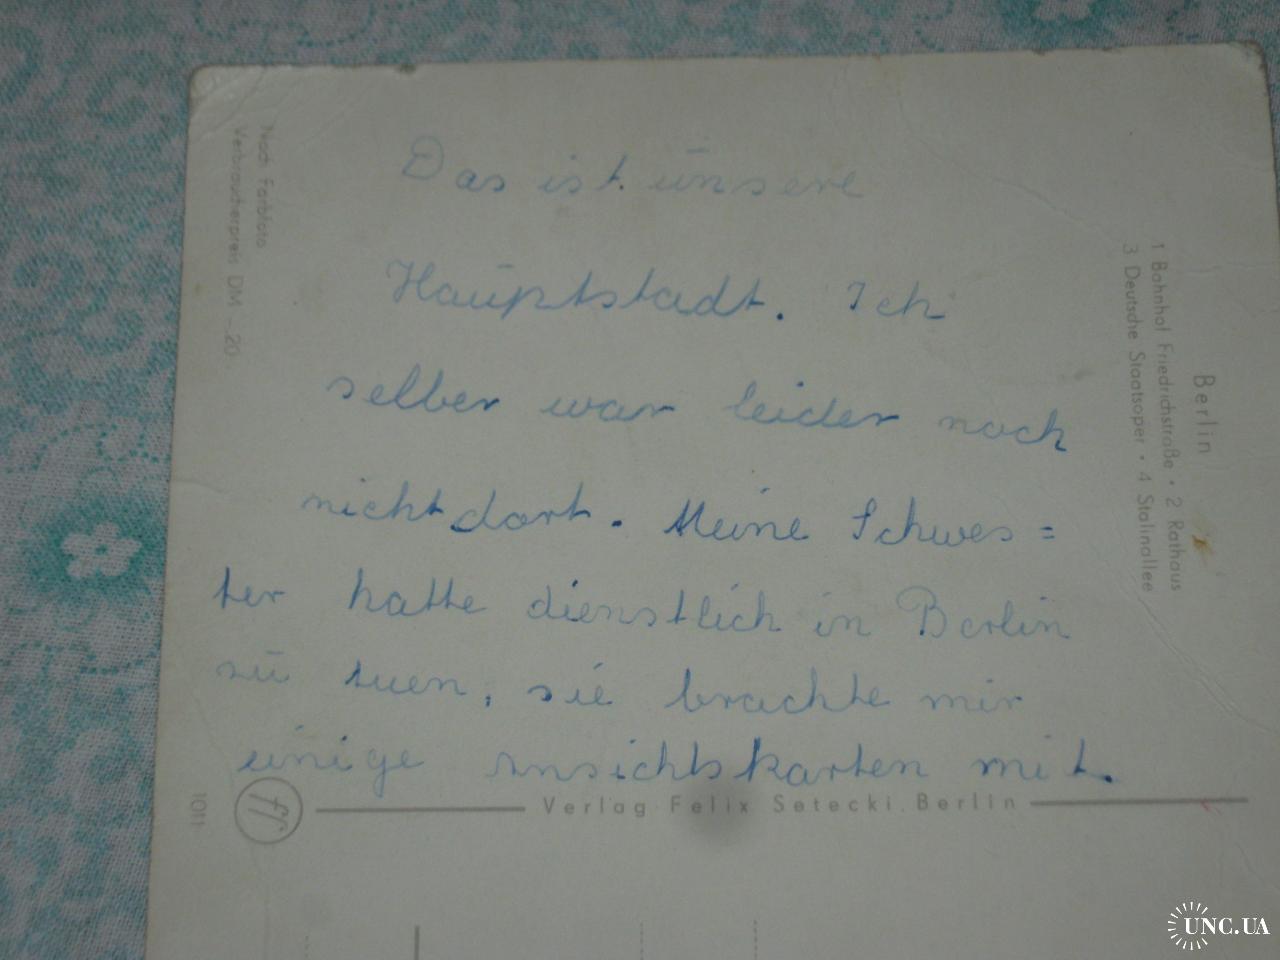 Das ist unsere
Hauptstadt. Ich
selber war leider noch
nicht dort. Meine Schwes=
ter hatte dienstlich in Berlin
zu tuen, sie brachte mir
einige Ansichtskarten mit.
Verlag Felix Setecki, Berlin
Berlin
1 Bahnhof Friedrichstraße • 2 Rathaus
3 Deutsche Staatsoper • 4 Stalinallee
Nach Farbfoto
Verbraucherpreis DM -.20
1011
UNC.UA